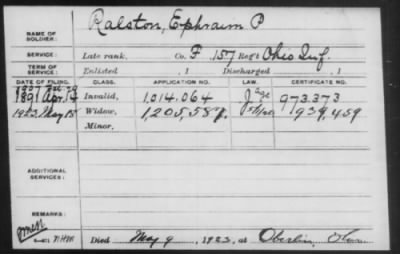 NAME OF SOLDIER: Ralston, Ephraim P
SERVICE: Late rank, Co. F 157 Reg't Ohio Inf.
TERM OF SERVICE: Enlisted , 1 Discharged , 1
DATE OF FILING. CLASS. APPLICATION NO. LAW. CERTIFICATE NO.
1891 Apr 14 Invalid, 1,014.064 J age 973.373
1923 May 15 Widow, 1,205,587. 939,459
Minor,
ADDITIONAL SERVICES:
REMARKS:
Died May 9, 1923, at Oberlin,